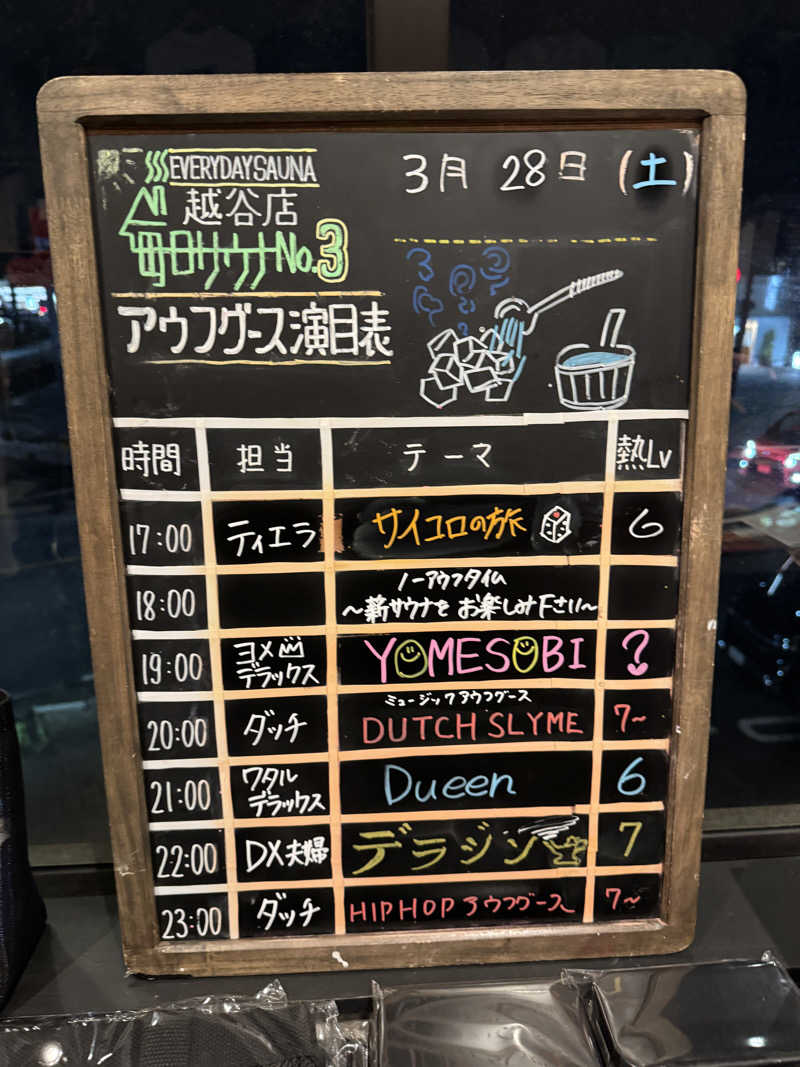 EVERYDAYSAUNA
越谷店
毎日サウナNo.3
アウフグース演目表
3月 28日 (土)
時間 担当 テーマ 熱Lv
17:00 ティエラ サイコロの旅 6
18:00 ノーアウフタイム
～薪サウナをお楽しみ下さい～
19:00 ヨメ デラックス YOMESOBI ?
ミュージックアウフグース
20:00 ダッチ DUTCH SLYME 7~
21:00 ワタル デラックス Dueen 6
22:00 DX夫婦 デラジン 7
23:00 ダッチ HIPHOP アウフグース 7~